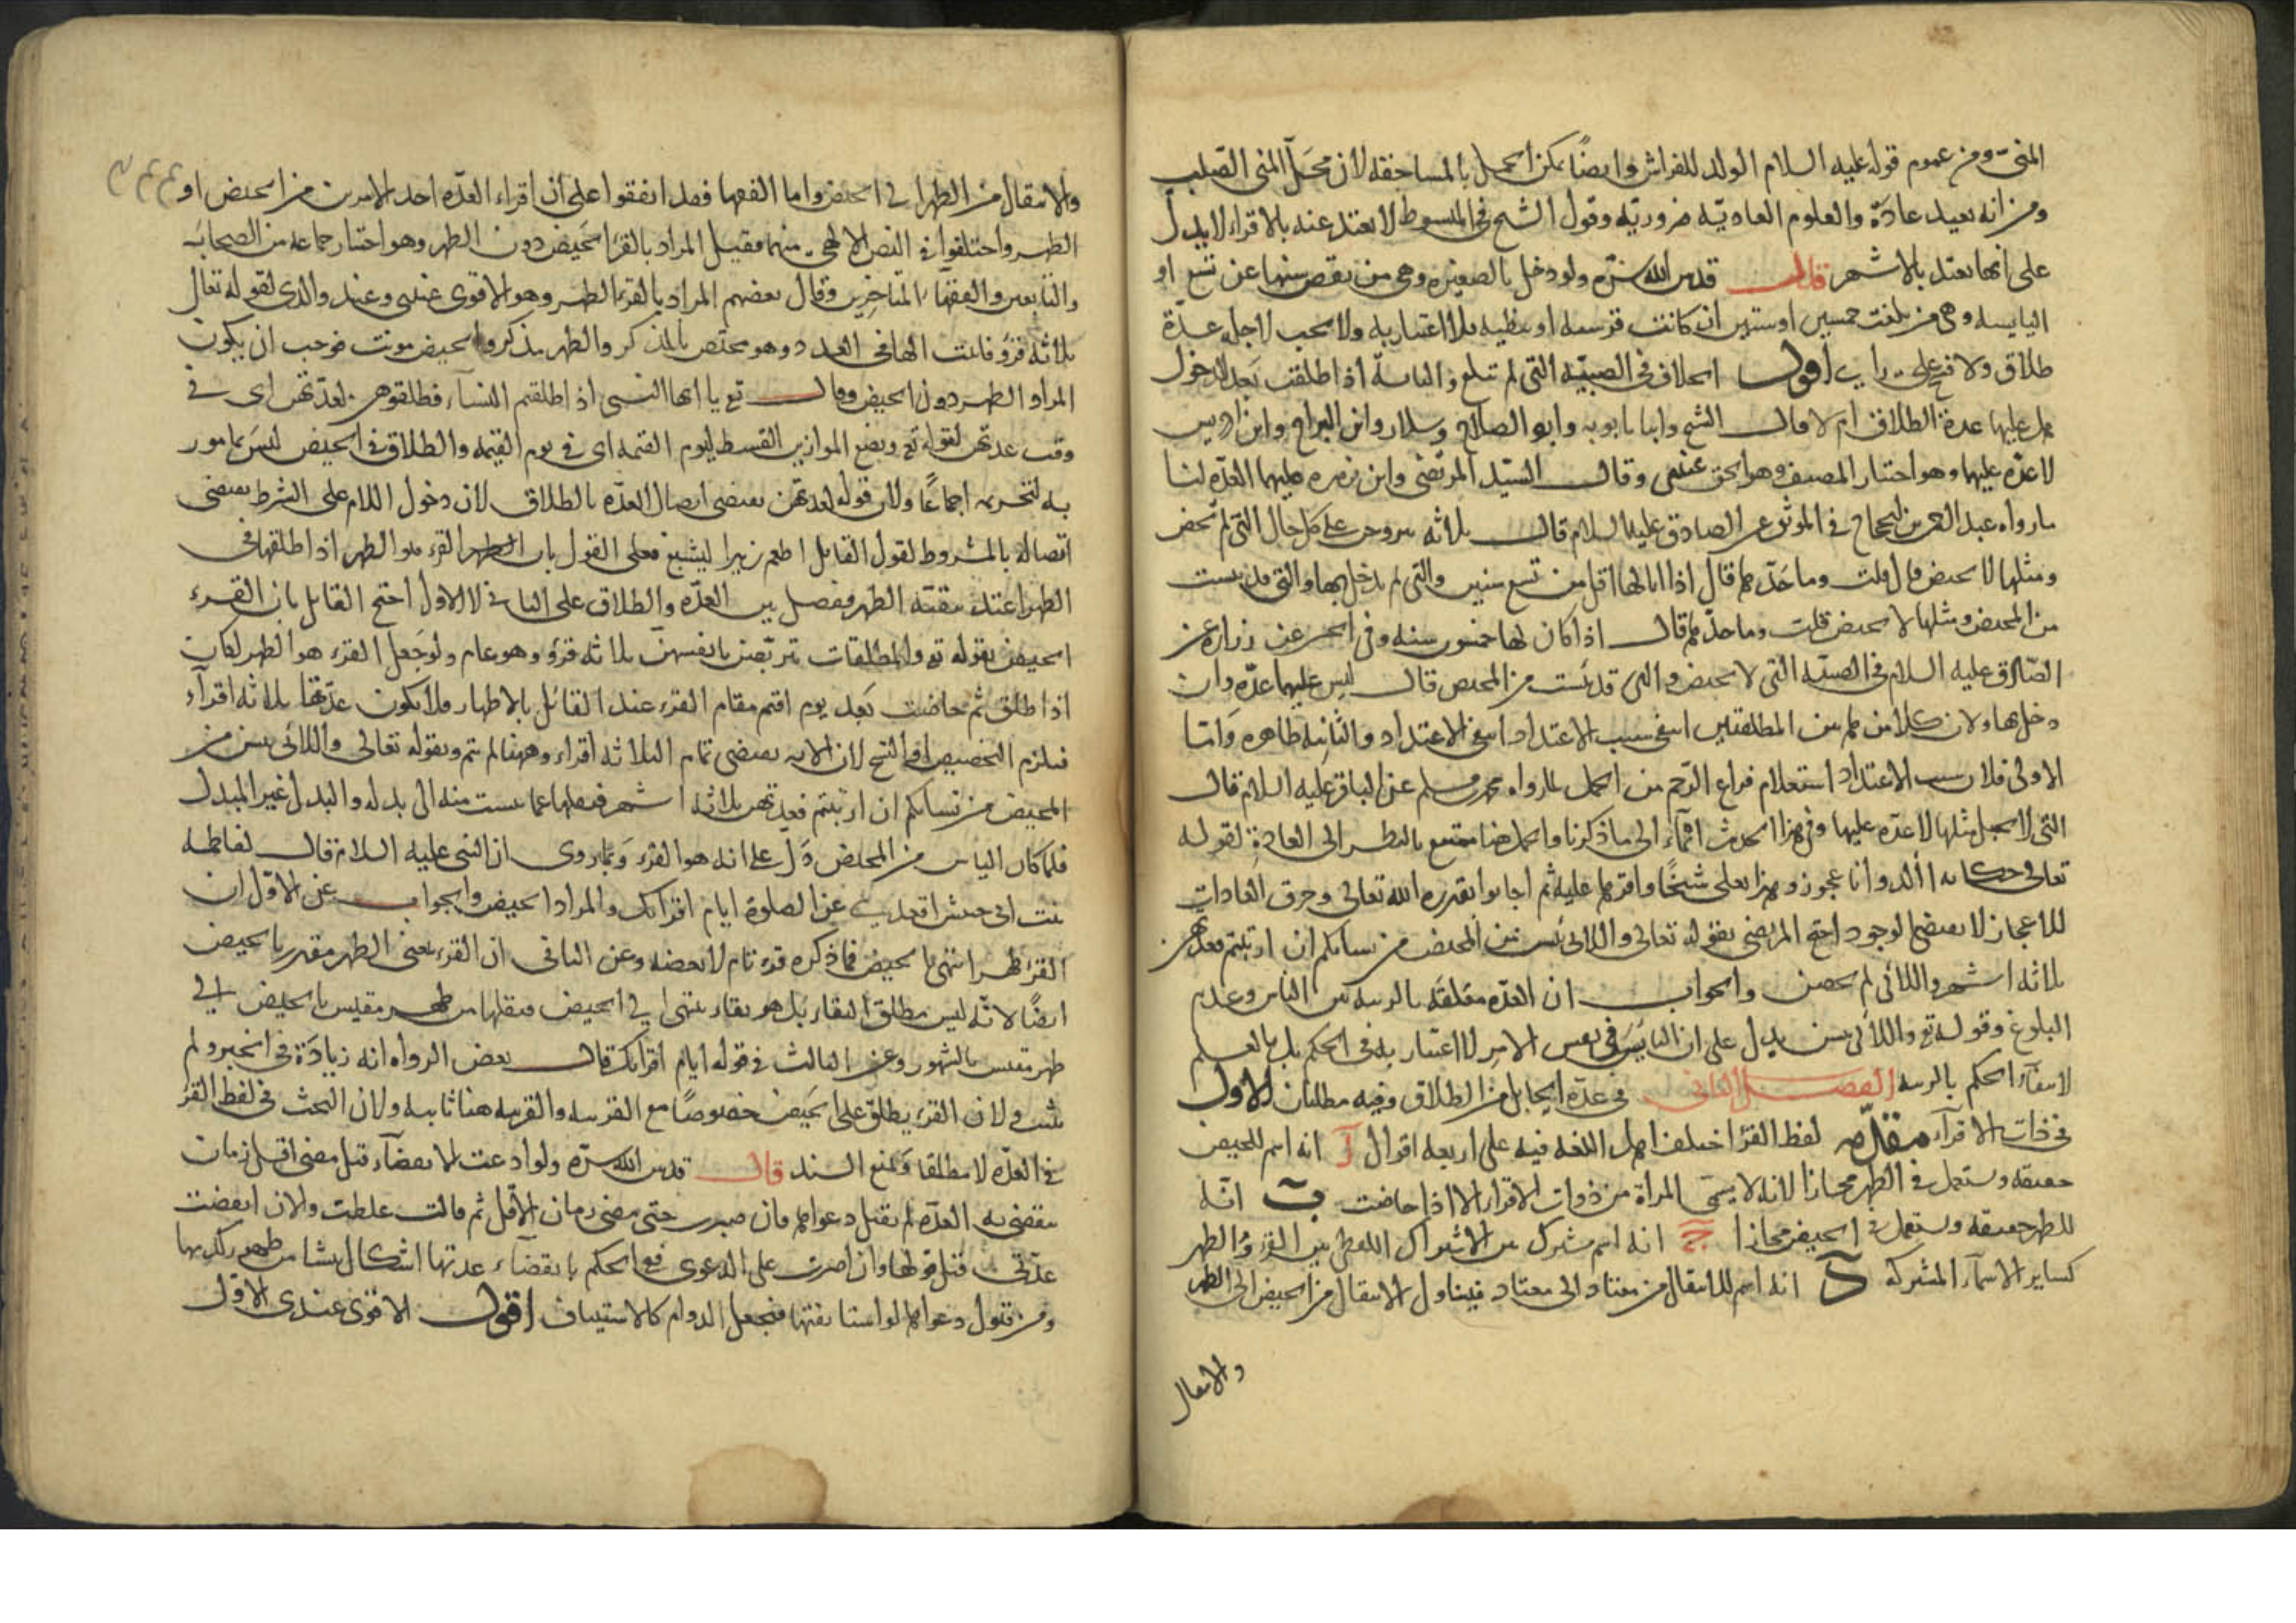 المنىّ ومن عموم قوله عليه السلام الولد للفراش وايضًا يمكن الحمل بالمساحقه لان محلّ المنى الصلب
ومن انه بعيد عادةً والعلوم العاديّه ضروريّه وقول الشيخ فى المبسوط لا تعتد عنه بالاقراء لا يدل
على انها تعتد بالاشهر قال قدس الله سرّه ولو دخل بالصغيره وهى من نقص سنها عن تسع او
اليايسه وهى من بلغت خمسين او ستين ان كانت قرشيه او نبطيه فلا اعتبار به ولا يجب لاجله عدّة
طلاق ولا فسخ على راى اقول الخلاف فى الصبيّه التى لم تبلغ واليايسة اذا طلقت بعد الدخول
هل عليها عدة الطلاق ام لا قال الشيخ وابنا بابويه وابو الصلاح وسلار وابن البراج وابن ادريس
لا عدّه عليها وهو اختيار المصنف وهو الحق عندى وقال السيّد المرتضى وابن زهره عليهما العدّه لنا
ما رواه عبد الرحمن بن الحجاج فى الموثق عن الصادق عليه السلام قال ثلاثه يتزوجن على كل حال التى لم تحض
ومثلها لا تحيض قال قلت وما حدّها قال اذا اتا لها اقل من تسع سنين والتى لم يدخل بها والتى قد يئست
من المحيض ومثلها لا تحيض قلت وما حدّها قال اذا كان لها خمسون سنه وفى الحسن عن زراره عن
الصّادق عليه السلام فى الصبيّه التى لا تحيض والتى قد يئست من المحيض قال ليس عليهما عدّه وان
دخل بها ولان كلا من هاتين المطلقتين انتفى سبب الاعتداد انتفى الاعتداد والثانيه ظاهره وامّا
الاولى فلان سبب الاعتداد استعلام فراغ الرّحم من الحمل لما رواه محمد بن مسلم عن الباقر عليه السلام قال
التى لا يحبل مثلها لا عدّه عليها وفى هذا الحديث ايماء الى ما ذكرنا والحمل هنا ممتنع بالنظر الى العادةِ لقوله
تعالى حكايه أألد وانا عجوز وهذا بعلى شيخًا واقرها عليه ثم اجابوا بقدره الله تعالى وخرق العادات
للاعجاز لا يقتضى الوجود احتج المرتضى بقوله تعالى واللائى يئسن من المحيض من نسائكم ان ارتبتم فعدتهن
ثلاثه اشهر واللائى لم يحضن والجواب ان العدّه معلقه بالريبه من الياس وعدم
البلوغ وقوله تع واللائى يئسن يدل على ان اليأس فى نفس الامر لا اعتبار به فى الحكم بل بالعلم
لانتفاء الحكم بالريبه الفصل الثانى فى عدّه الحايل من الطلاق وفيه مطلبان الاول
فى ذات الاقرآء مقدّمه لفظ القرء اختلف اهل اللغه فيه على اربعه اقوال آ انه اسم للحيض
حقيقه ويستعمل فى الطهر مجازا لانه لا يسمّى المراة من ذوات الاقراء الا اذا حاضت ب انّه
للطهر حقيقه ويستعمل فى الحيض مجازا ج انه اسم مشترك بين الاشتراك اللفظى بين القرء والطهر
كساير الاسمآء المشتركه د انه اسم للانتقال من معتاد الى معتاد فيتناول الانتقال من الحيض الى الطهر
والانتقال
والانتقال من الطهر الى الحيض واما الفقها فقد اتفقوا على ان اقراء العدّه احد الامرين من الحيض او
الطهر واختلفوا فى النص الالهى منهما فقيل المراد بالقرء الحيض دون الطهر وهو اختيار جماعه من الصحابه
والتابعين والفقهاء المتاخرين وقال بعضهم المراد بالقرء الطهر وهو الاقوى عندى وعند والدى لقوله تعالى
ثلاثه قروء فاثبت الها فى العدد وهو مختص بالمذكر والطهر مذكر والحيض مونث فوجب ان يكون
المراد الطهر دون الحيض وقال تع يا ايها النبى اذا طلقتم النسآء فطلقوهن لعدتهن اى فى
وقت عدتهن لقوله تع ونضع الموازين القسط ليوم القيمه اى فى يوم القيمه والطلاق فى الحيض ليس بمامور
به لتحريمه اجماعًا ولان قوله لعدتهن يقتضى اتصال العدّه بالطلاق لان دخول اللام على الشرط يقتضى
اتصاله بالمشروط لقول القايل اطعم زيدا ليشبع فعلى القول بان القرء هو الطهر اذا طلقها فى
الطهر اعتدت ببقيّه الطهر فيفصل بين العدّه والطلاق على الثانى لا الاول احتج القايل بان القرء
الحيض بقوله تع والمطلقات يتربّصن بانفسهن ثلاثه قروء وهو عام ولو جعل القرء هو الطهر لكان
اذا طلق ثم حاضت بعد يوم اقيم مقام القرء عند القائل بالاطهار فلا يكون عدّتها ثلاثه اقرآء
فيلزم التخصيص او النسخ لان الايه يقتضى تمام الثلاثه اقراء وههنا لم يتم وبقوله تعالى واللائى يئسن من
المحيض من نسائكم ان ارتبتم فعدتهن ثلاثه اشهر فنقلها عما يئست منه الى بدله والبدل غير المبدل
فلما كان الياس من المحيض دَلّ على انه هو القرء وبما روى ان النبى عليه السلام قال لفاطمه
بنت ابى حبيش اقعدى عن الصلوة ايام اقرائك والمراد الحيض والجواب عن الاوّل ان
القرء طهر انتهى بالحيض فما ذكره قرء تام لا بعضه وعن الثانى ان القرء بمعنى الطهر مقدر بالحيض
ايضًا لانّه ليس مطلق النقاء بل هو نقاء ينتهى الى الحيض فنقلها من طهر مقيس بالحيض الى
طهر مقيس بالشهور وعن الثالث فى قوله ايام اقرائك قال بعض الرواه انه زيادة فى الخبر ولم
يثبت ولان القرء يطلق على الحيض خصوصًا مع القرينه والقرينه هنا ثابته ولان البحث فى لفظ القرء
فى العدّه لا مطلقا وَنمنع السند قال قدس الله سرّه ولو ادعت الانقضآء قبل مضى اقل زمان
ينقضى به العدّه لم يقبل دعواها فان صبرت حتى مضى زمان الاقل ثم قالت غلطت والان انقضت
عدّتى قبل قولها وان اصرت على الدعوى ففى الحكم بانقضآء عدتها اشكال ينشا من ظهور كذبها
ومن قبول دعواها لو استانفتها فيجعل الدوام كالاستيناف اقول الاقوى عندى الاوّل